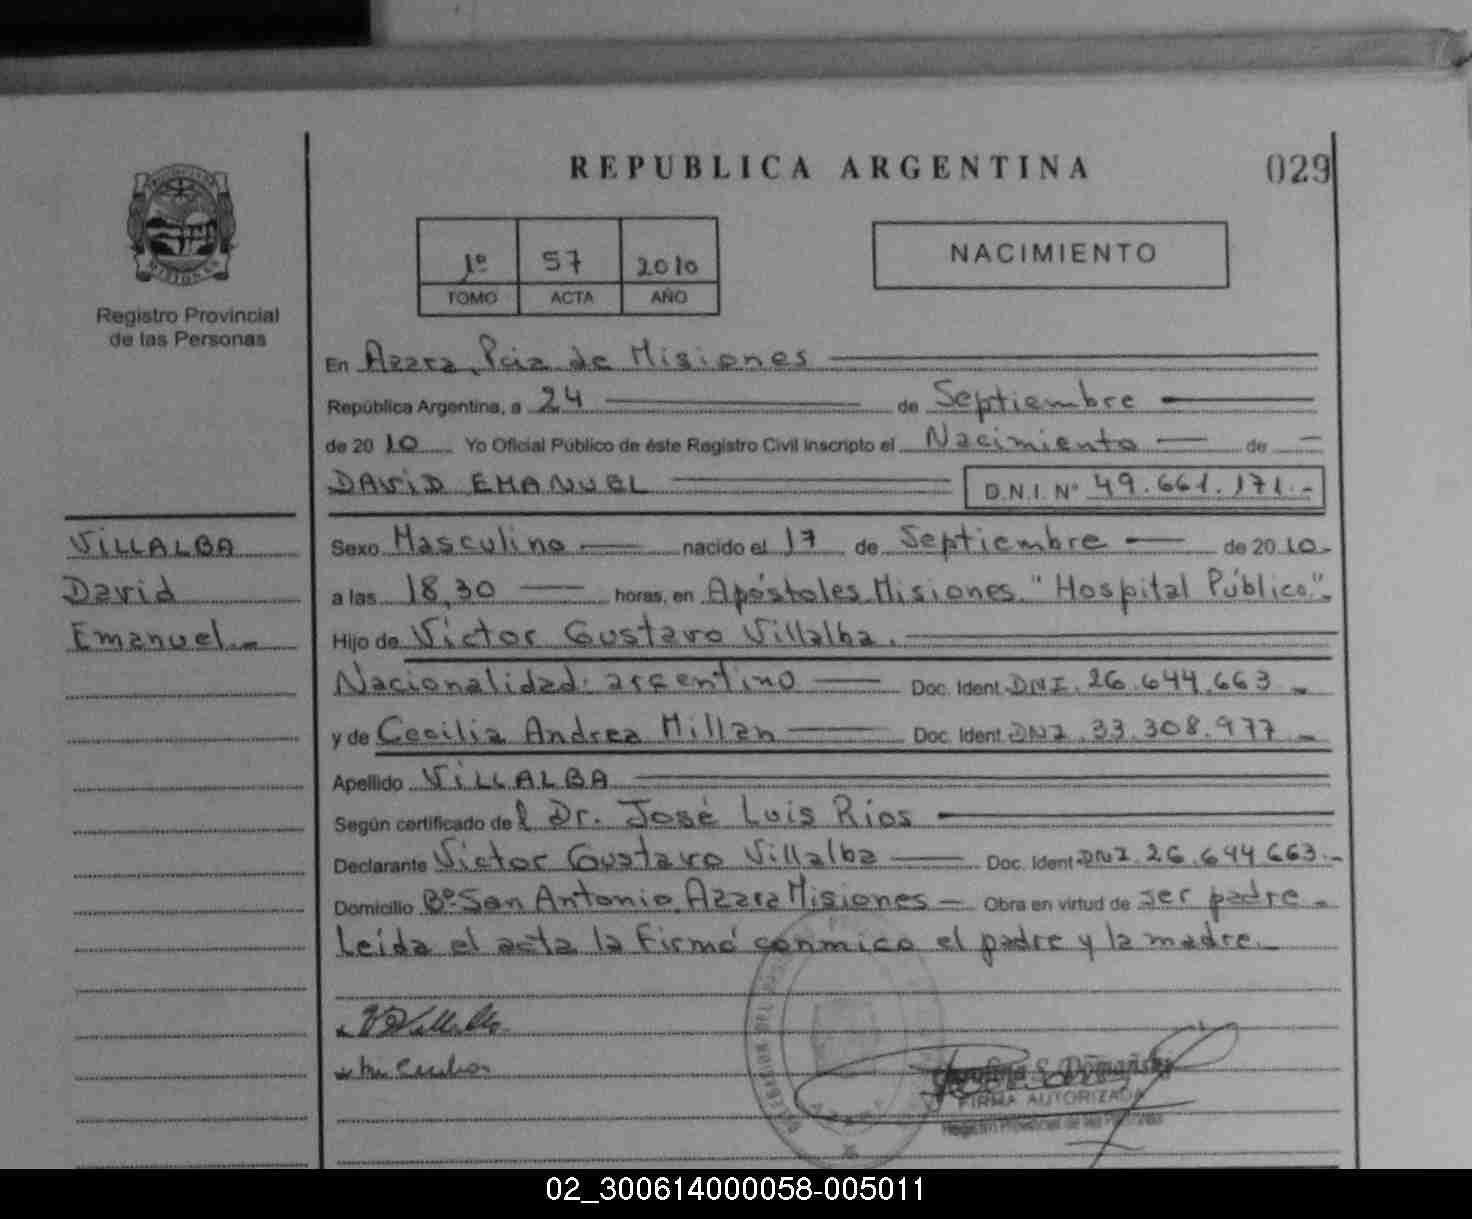 REPUBLICA ARGENTINA
029
1º 57 2010
TOMO ACTA AÑO
NACIMIENTO
MISIONES
Registro Provincial
de las Personas
En Azara, Pcia de Misiones
República Argentina, a 24 de Septiembre
de 2010 Yo Oficial Público de éste Registro Civil inscripto el Nacimiento de
DAViD EMANUEL D.N.I. Nº 49.661.171.-
VILLALBA
David
Emanuel.-
Sexo Masculino nacido el 17 de Septiembre de 2010.-
a las 18,30 horas, en Apóstoles Misiones "Hospital Público".
Hijo de Victor Gustavo Villalba.
Nacionalidad: argentino Doc. Ident. DNI. 26.644.663.-
y de Cecilia Andrea Millan Doc. Ident. DNI. 33.308.977.-
Apellido VILLALBA
Según certificado del Dr. José Luis Ríos
Declarante Victor Gustavo Villalba Doc. Ident. DNI. 26.644.663.-
Domicilio Bº San Antonio. Azara Misiones - Obra en virtud de ser padre.-
Leída el acta la firmó conmigo el padre y la madre.-
FIRMA AUTORIZADA
Registro Provincial de las Personas
02_300614000058-005011